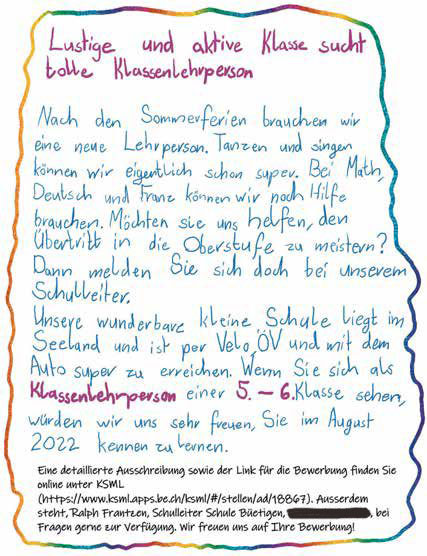 Lustige und aktive Klasse sucht
tolle Klassenlehrperson
Nach den Sommerferien brauchen wir
eine neue Lehrperson. Tanzen und singen
können wir eigentlich schon super. Bei Math,
Deutsch und Franz können wir noch Hilfe
brauchen. Möchten sie uns helfen, den
Übertritt in die Oberstufe zu meistern?
Dann melden Sie sich doch bei unserem
Schulleiter.
Unsere wunderbare kleine Schule liegt im
Seeland und ist per Velo, ÖV und mit dem
Auto super zu erreichen. Wenn Sie sich als
Klassenlehrperson einer 5. – 6. Klasse sehen,
würden wir uns sehr freuen, Sie im August
2022 kennen zu lernen.
Eine detaillierte Ausschreibung sowie der Link für die Bewerbung finden Sie
online unter KSML
(https://www.ksml.apps.be.ch/ksml/#/stellen/ad/18867). Ausserdem
steht, Ralph Frantzen, Schulleiter Schule Büetigen, , bei
Fragen gerne zur Verfügung. Wir freuen uns auf Ihre Bewerbung!